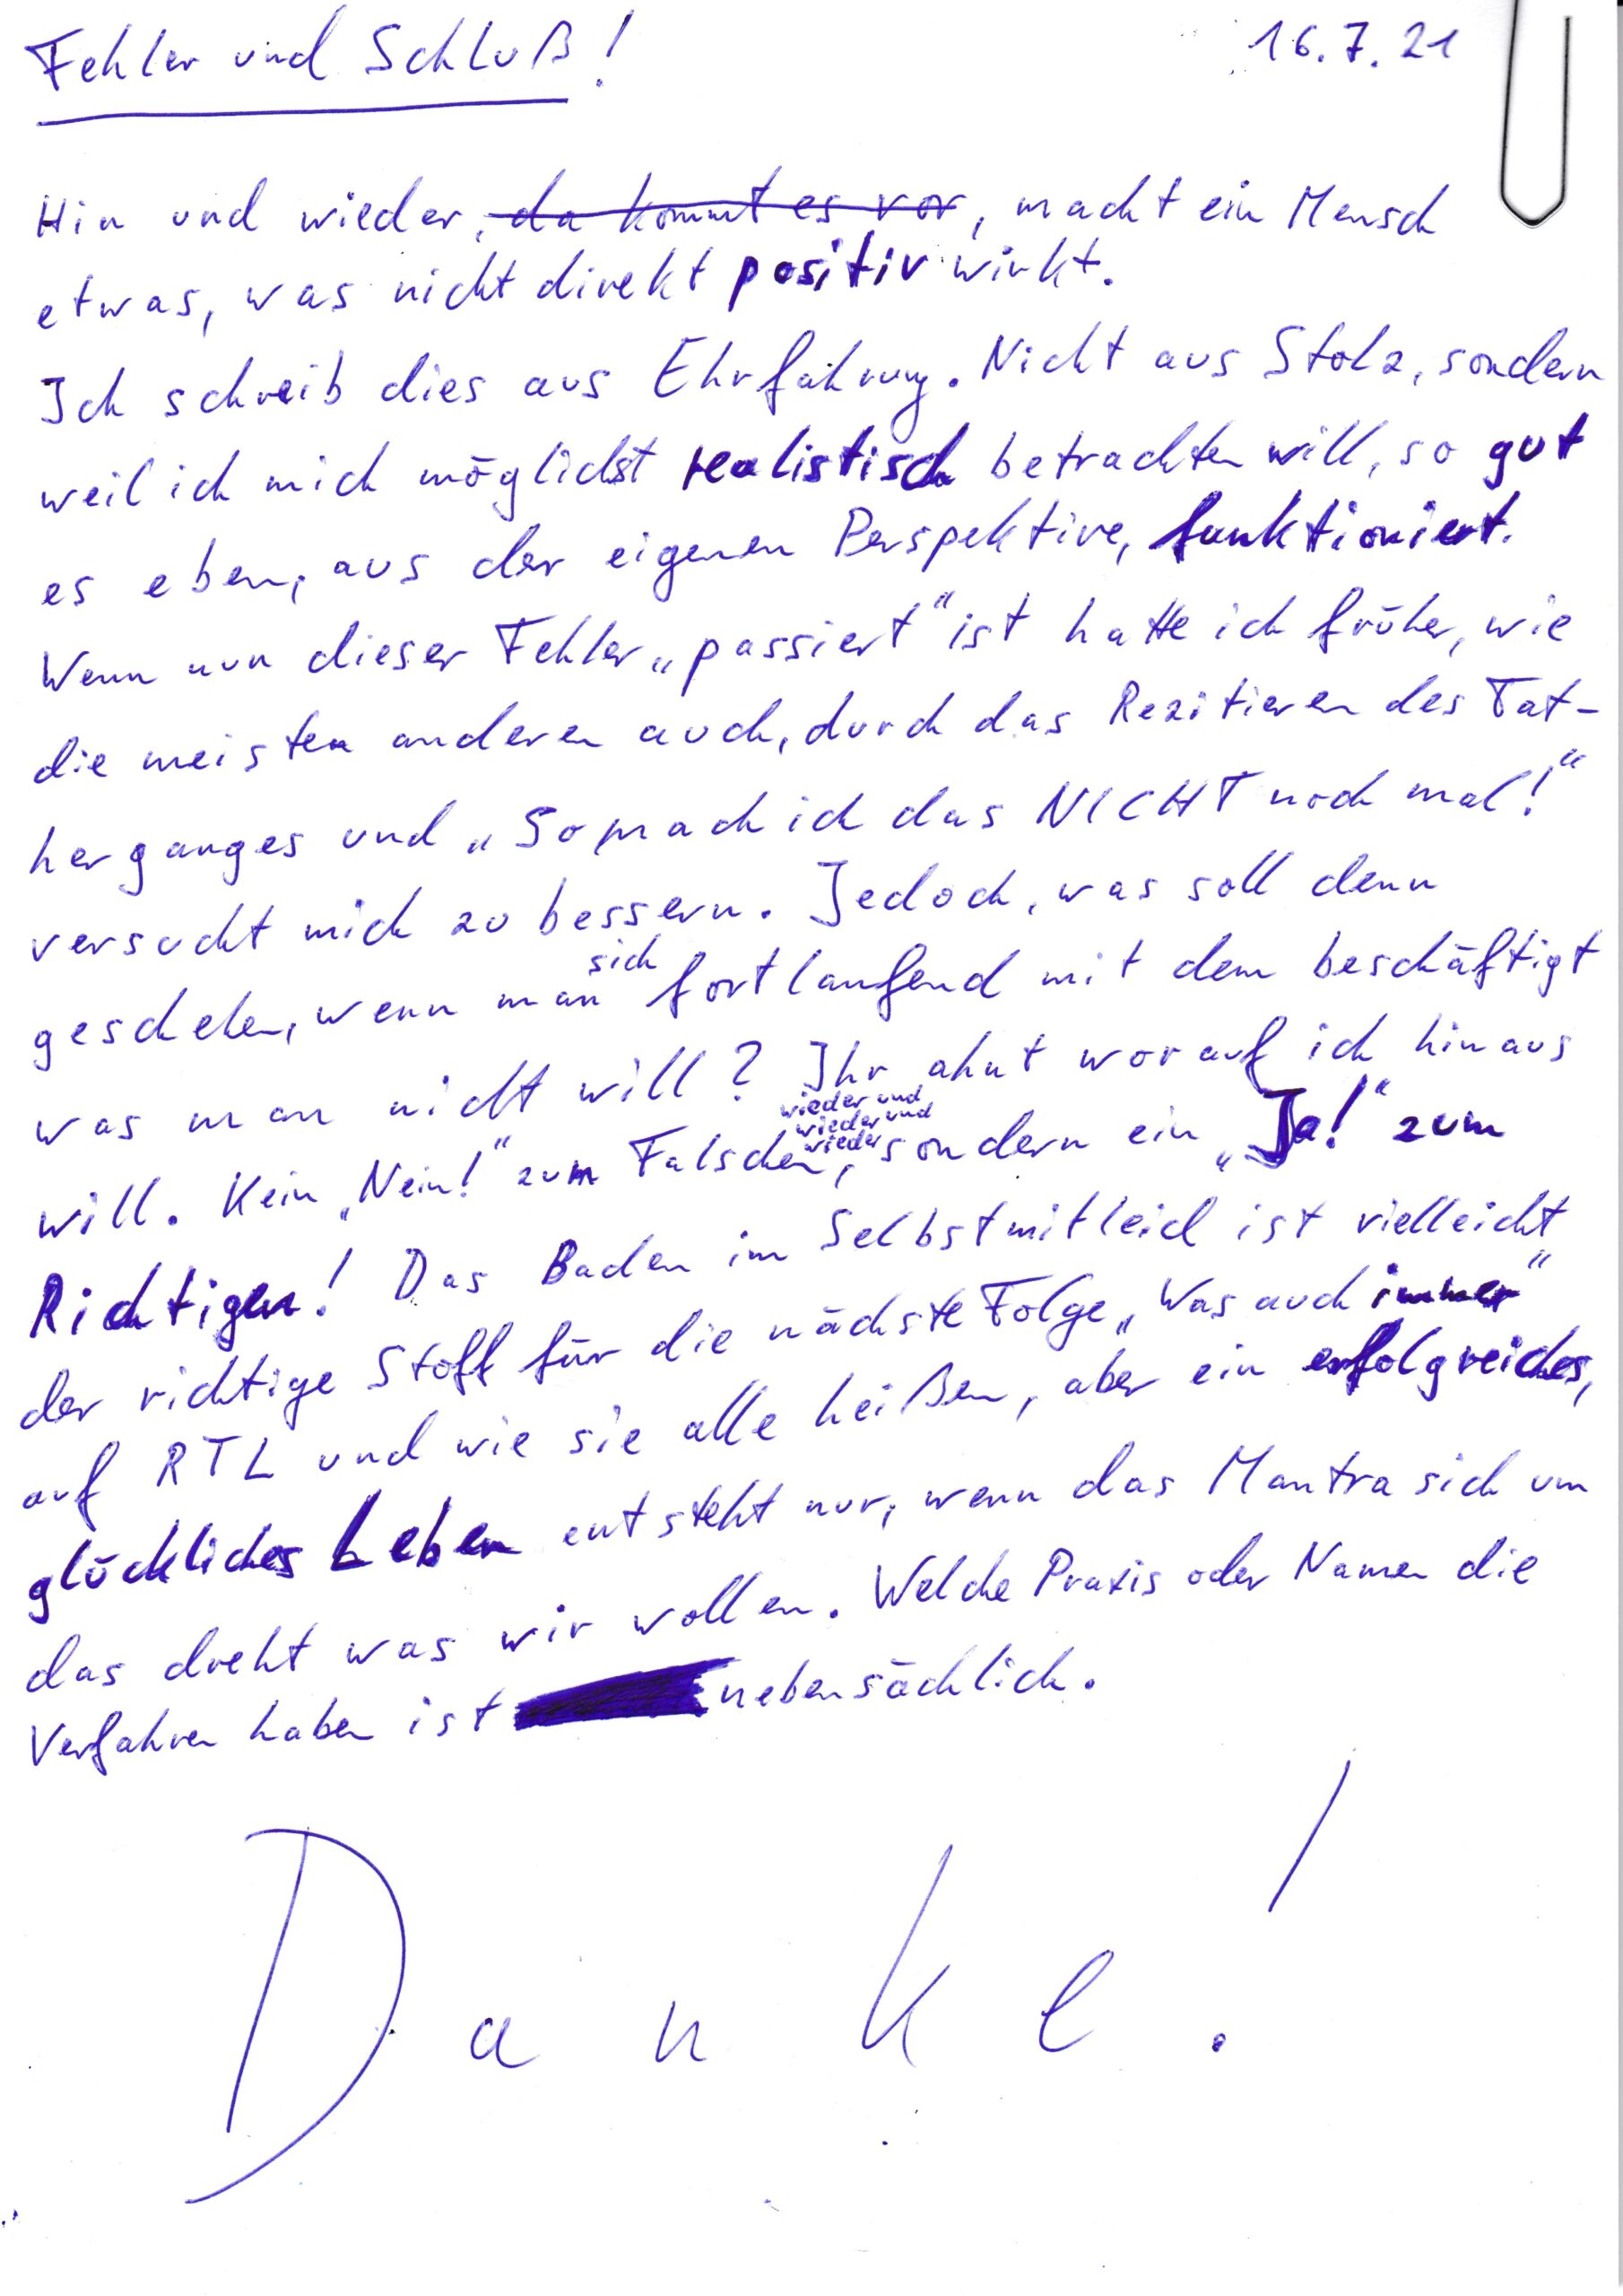 Fehler und Schluß! 16.7.21
Hin und wieder, da kommt es vor, macht ein Mensch
etwas, was nicht direkt positiv wirkt.
Ich schreib dies aus Ehrfahrung. Nicht aus Stolz, sondern
weil ich mich möglichst realistisch betrachten will, so gut
es eben, aus der eigenen Perspektive, funktioniert.
Wenn nun dieser Fehler „passiert“ ist hatte ich früher, wie
die meisten anderen auch, durch das Rezitieren des Tat-
herganges und „So mach ich das NICHT noch mal!“
versucht mich zu bessern. Jedoch, was soll denn
geschehen, wenn man sich fortlaufend mit dem beschäftigt
was man nicht will? Ihr ahnt worauf ich hinaus
will. Kein „Nein!“ zum Falschen, wieder und wieder und wieder sondern ein „Ja!“ zum
Richtigen! Das Baden im Selbstmitleid ist vielleicht
der richtige Stoff für die nächste Folge „Was auch immer“
auf RTL und wie sie alle heißen, aber ein erfolgreiches,
glückliches Leben entsteht nur, wenn das Mantra sich um
das dreht was wir wollen. Welche Praxis oder Namen die
Verfahren haben ist nebensächlich.
Danke!